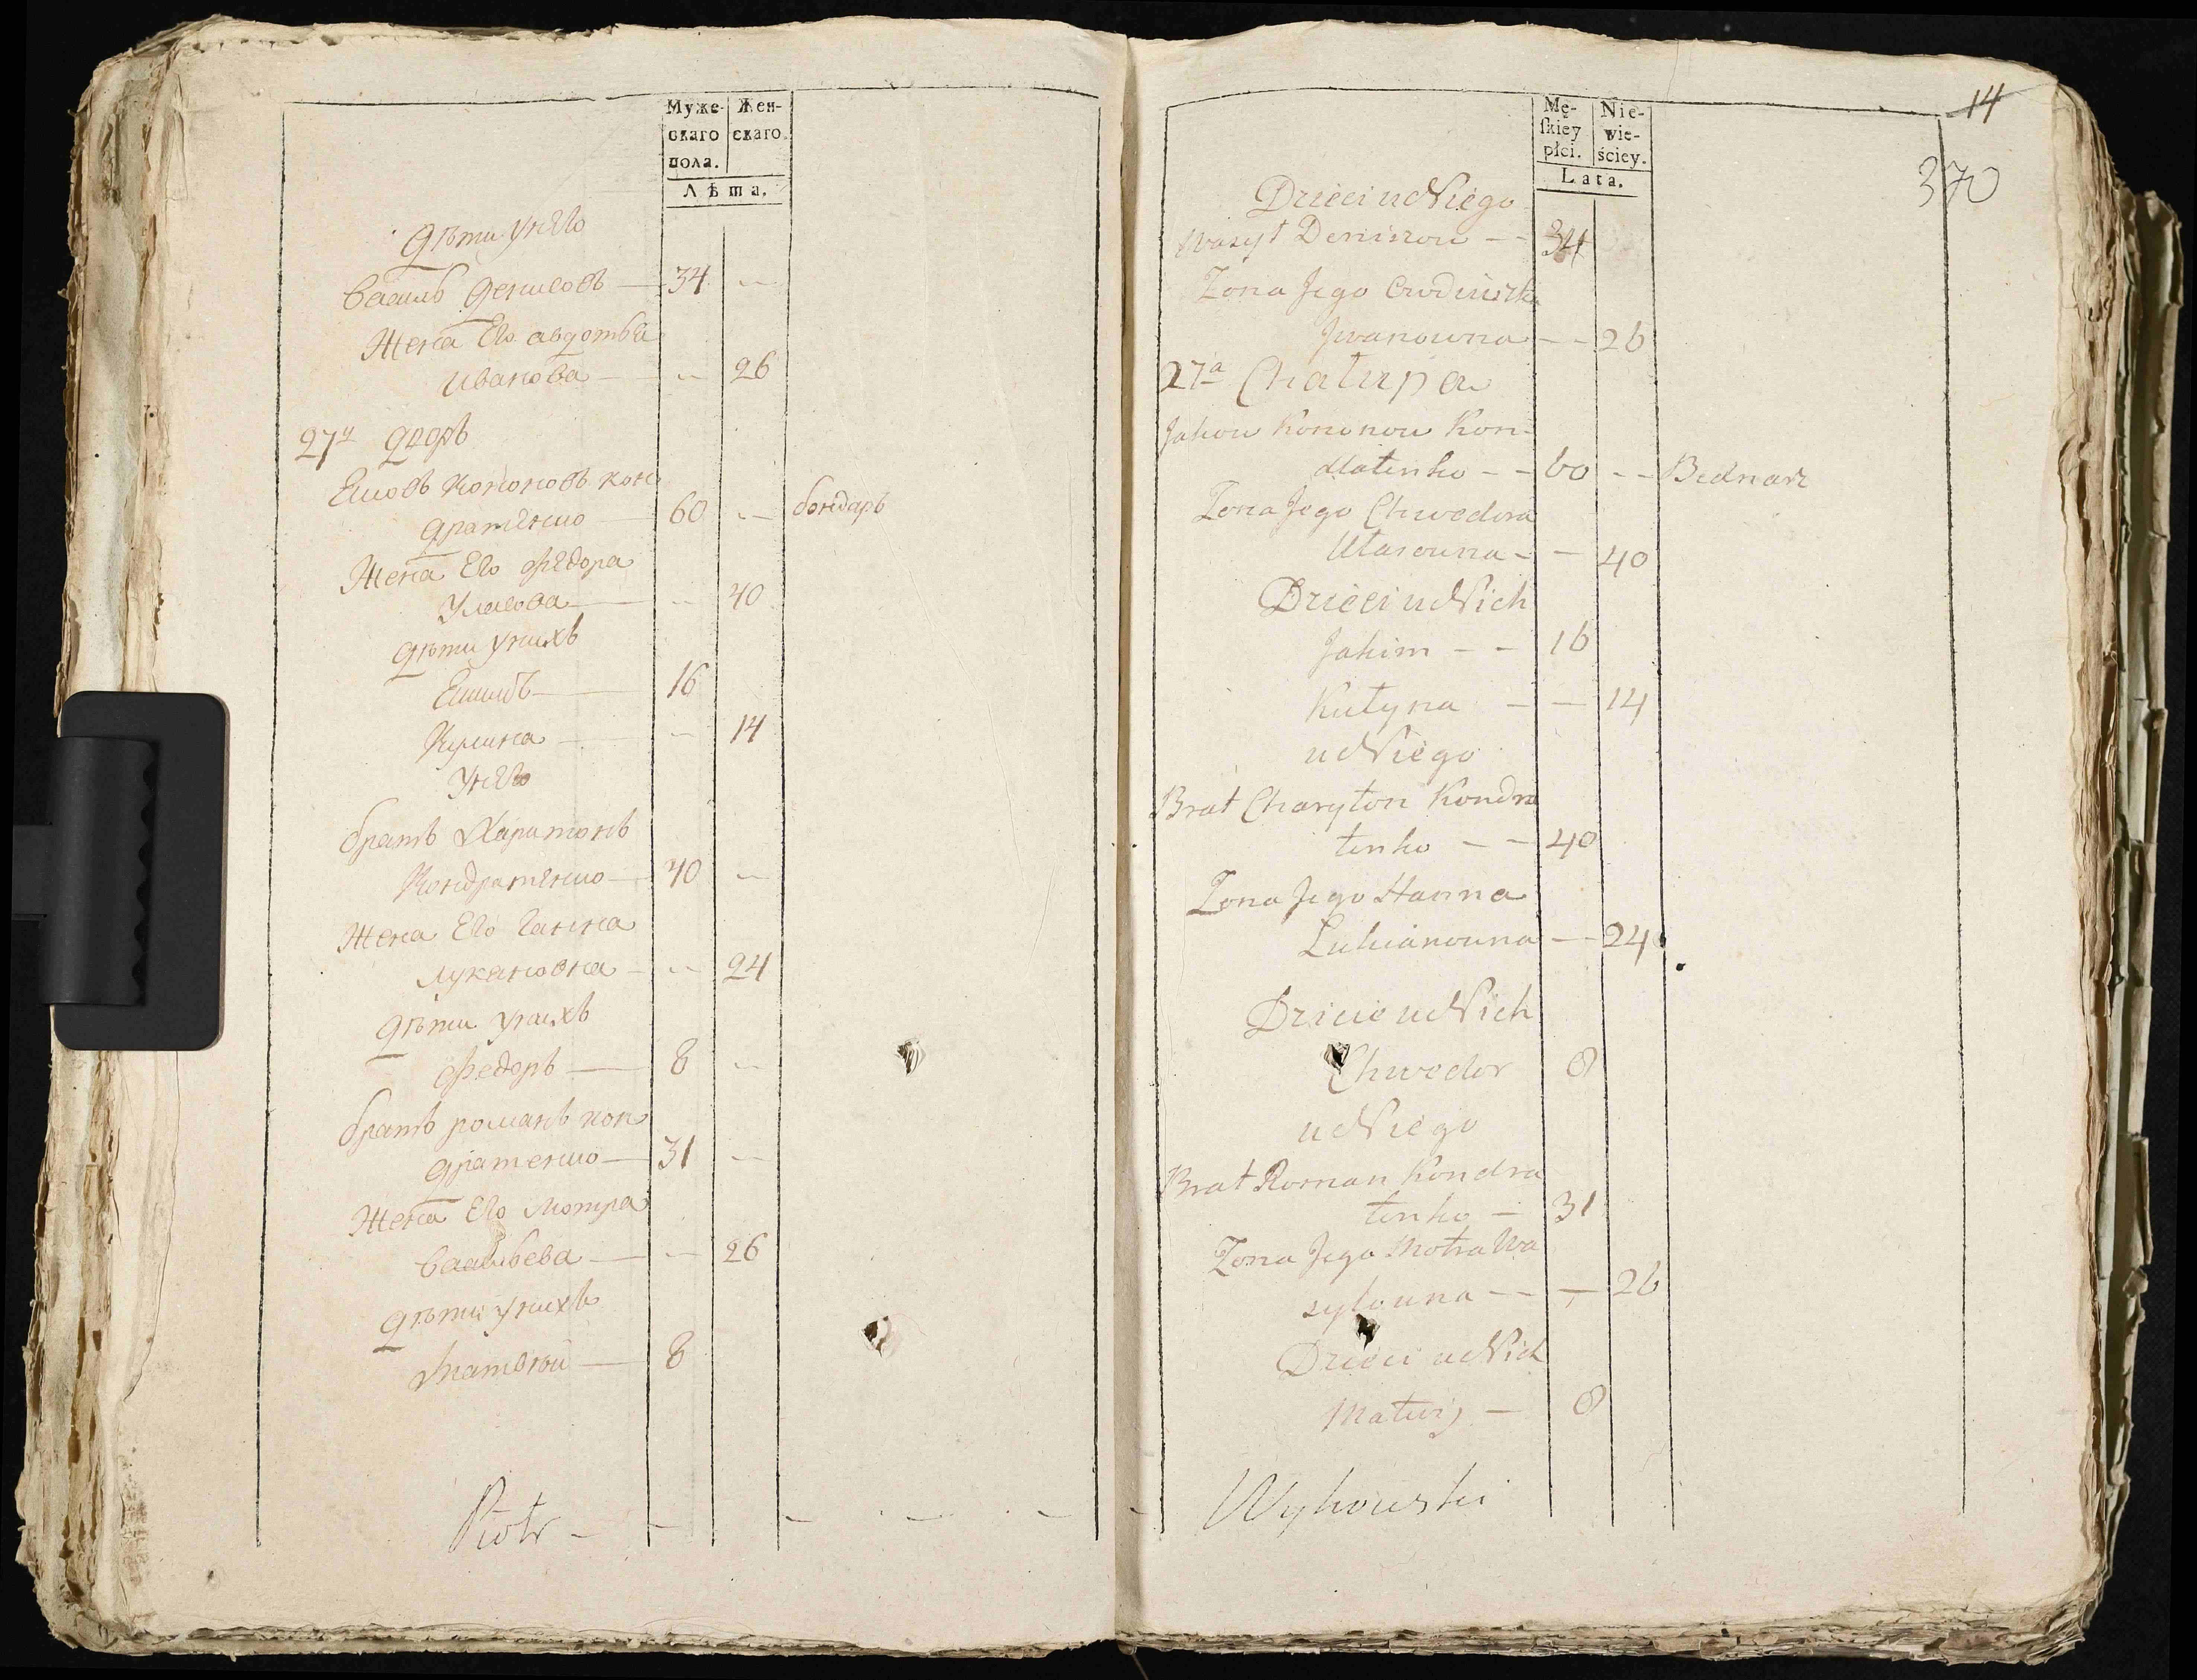 Муже- Жен-
скаго скаго
пола.
Лѣта.
Дѣти у него
Василь Денисовъ — 34 —
Жена Его авдотья
Иванова — — 26
27й Дворъ
Ековъ Кононовъ кон
дратенко 60 — бондарь
Жена Его Федора
Уласова — — 40
Дѣти у нихъ
Екимъ — 16
Кулина — — 14
У него
братъ Харитонъ
Кондратенко — 40 —
Жена Его Ганна
Лукяновна — — 24
Дѣти у нихъ
Федоръ — 8 —
братъ романъ кон
дратенко — 31 —
Жена Его Мотра
Васильева — — 26
Дѣти у нихъ
Матвѣй — 8
Piotr — — — — — —
14
370
Mę- Nie-
ſkiey wie-
płci. ściey.
Lata.
Dzieci u Niego
Wasyl Deniszow — — 34
Zona Jego
Jwanowna — — 26
27a Chałupa
Jakow Kononow Kon-
dratenko — — 60 — — Bednarz
Zona Jego Chwedora
Ułasowna — — 40
Dzieci u Nich
Jakim — — 16
Kulyna — — 14
u Niego
Brat Charyton Kondra
tenko — — 40
Zona Jego Hanna
Lukianowna — — 24
Dzieci u Nich
Chwedor 8
u Niego
Brat Roman Kondra
tenko — 31
Zona Jego Motra Wa
sylowna — — — 26
Dzieci u Nich
Matwij — 8
Wyhowski